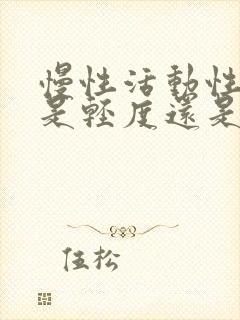 慢性活動性
是輕度還是
伍松